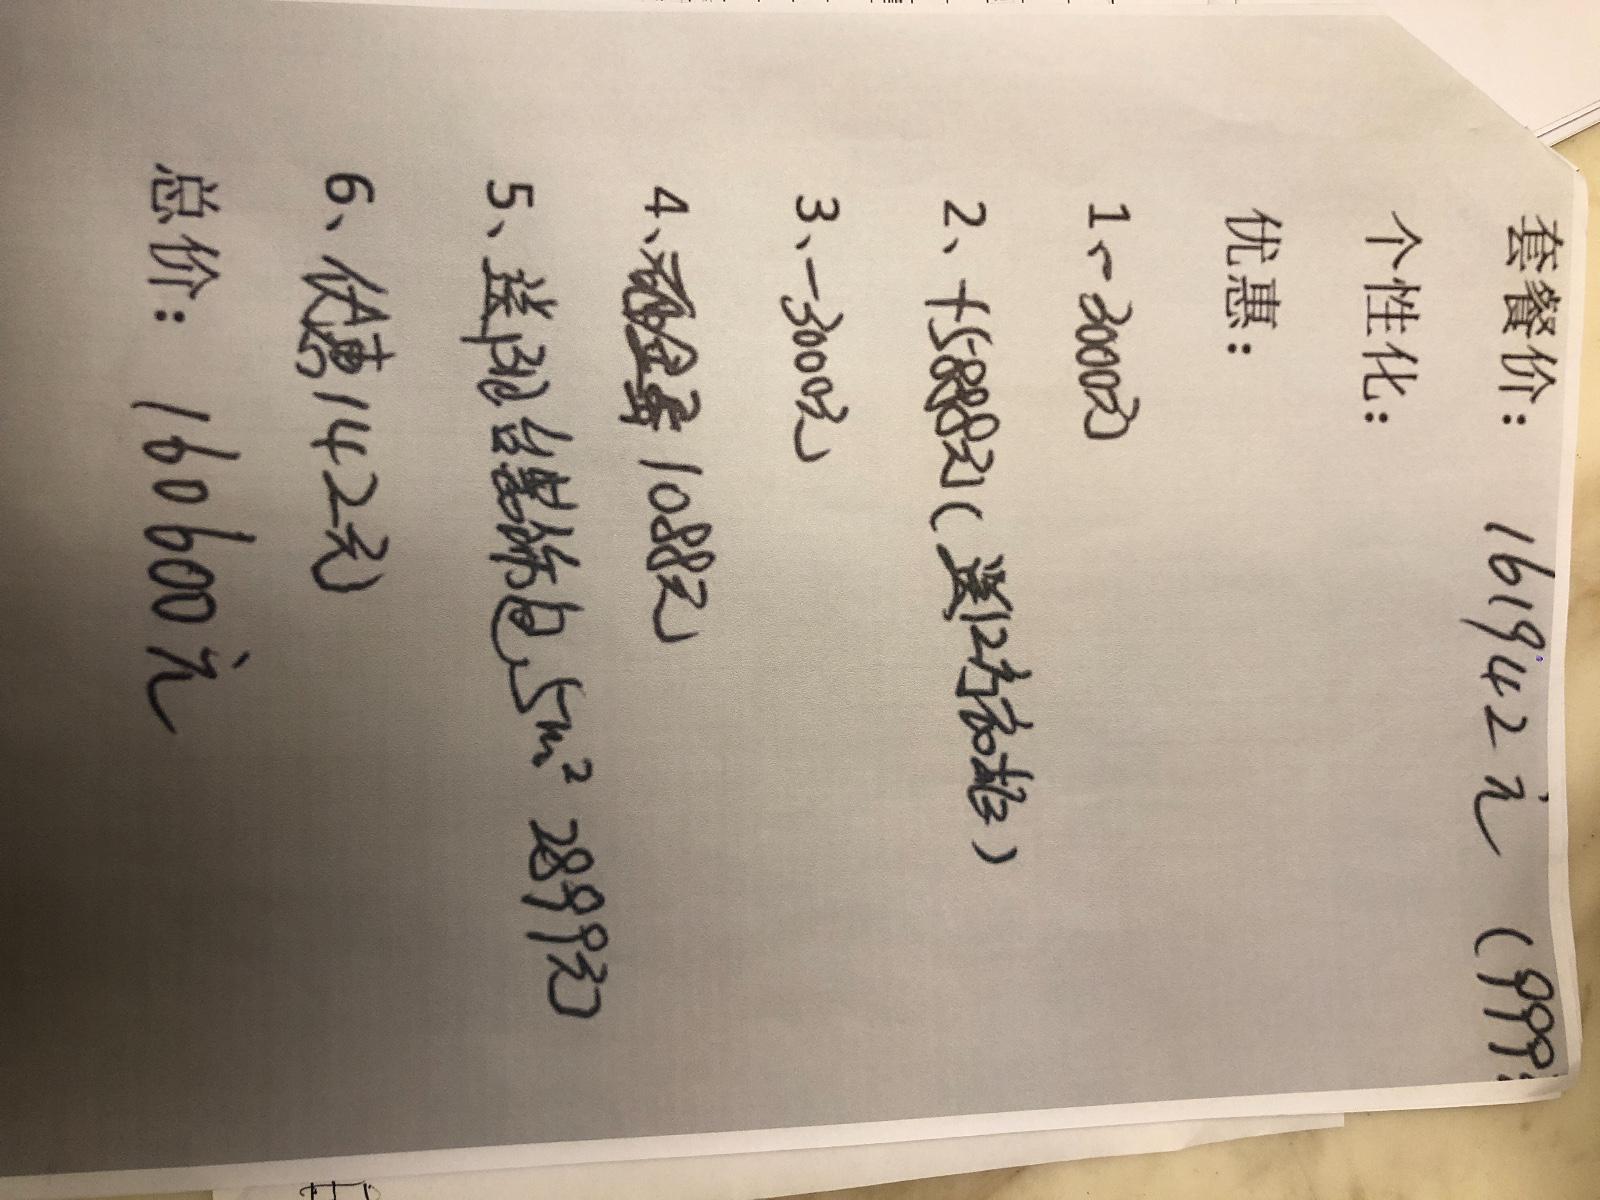 套餐价: 161942元 (999
个性化:
优惠:
1、-3000元
2、+5888元(送12方
3、-3000元
4、砸金蛋1088元
5、送阳台装饰包,5m² 2899元
6、优惠142元
总价: 160600元